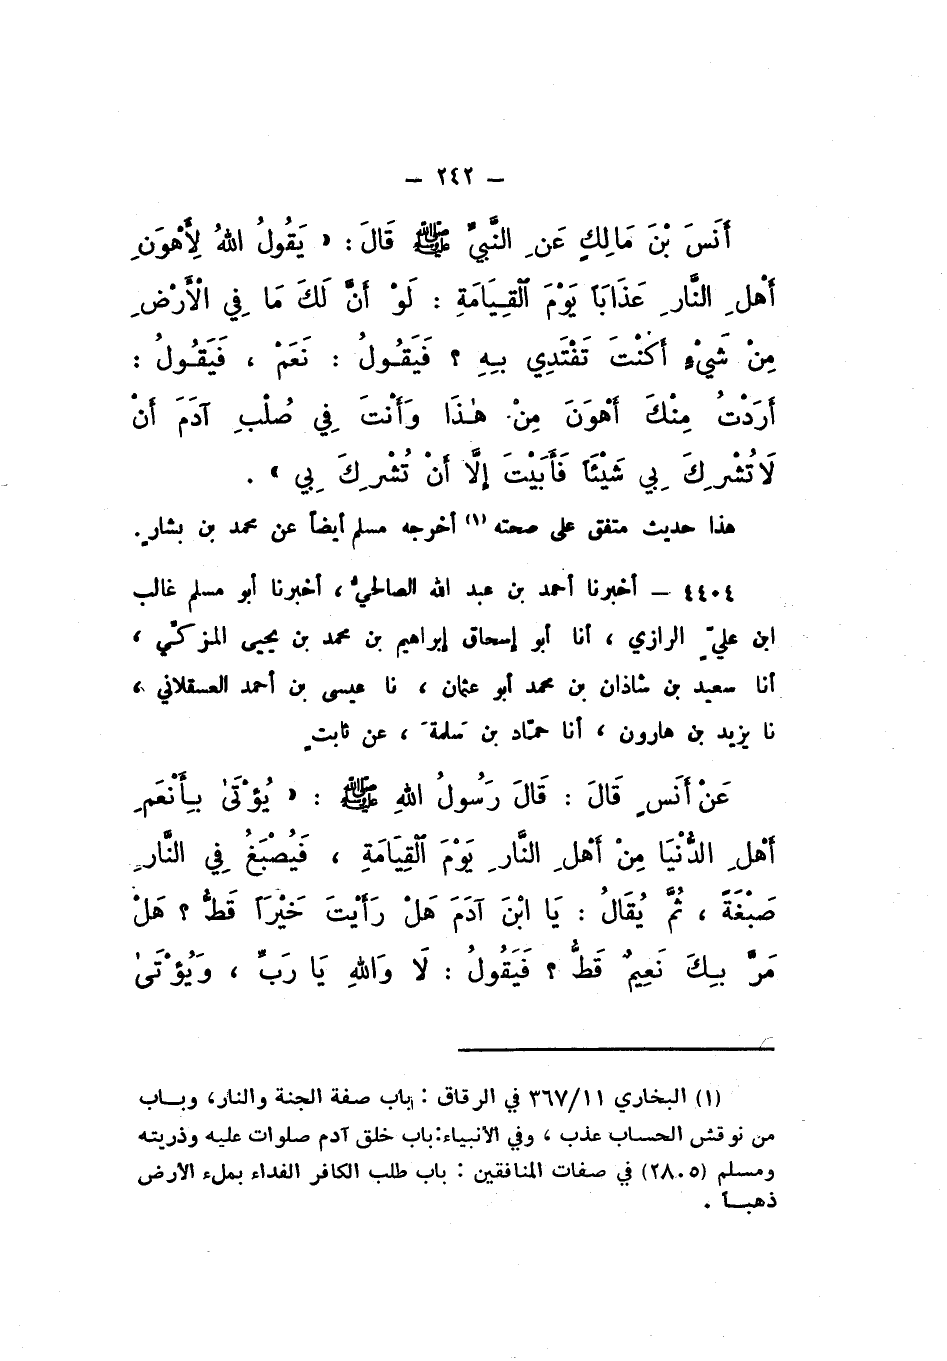 – ٢٤٢ –
أَنَسَ بْنَ مَالِكٍ عَنِ النَّبِيِّ ﷺ قَالَ : « يَقُولُ اللهُ لِأَهْوَنِ
أَهْلِ النَّارِ عَذَابَاً يَوْمَ ٱلْقِيَامَةِ : لَوْ أَنَّ لَكَ مَا فِي الْأَرْضِ
مِنْ شَيْءٍ أَكُنْتَ تَفْتَدِي بِهِ ؟ فَيَقُولُ : نَعَمْ ، فَيَقُولُ :
أَرَدْتُ مِنْكَ أَهْوَنَ مِنْ هٰذَا وَأَنْتَ فِي صُلْبِ آدَمَ أَنْ
لَا تُشْرِكَ بِي شَيْئَاً فَأَبَيْتَ إِلَّا أَنْ تُشْرِكَ بِي » .
هذا حديث متفق على صحته (١) أخرجه مسلم أيضاً عن محمد بن بشارٍ.
٤٤٠٤ – أخبرنا أحمد بن عبد الله الصالحيُّ ، أخبرنا أبو مسلم غالب
ابن عليٍّ الرازي ، أنا أبو إسحاق إبراهيم بن محمد بن يحيى المزكّي ،
أنا سعيد بن شاذان بن محمد أبو عثمان ، نا عيسى بن أحمد العسقلاني ،
نا يزيد بن هارون ، أنا حمّاد بن سَلمةَ ، عن ثابتٍ
عَنْ أَنَسٍ قَالَ : قَالَ رَسُولُ اللهِ ﷺ : « يُؤْتَىٰ بِأَنْعَمِ
أَهْلِ الدُّنْيَا مِنْ أَهْلِ النَّارِ يَوْمَ ٱلْقِيَامَةِ ، فَيُصْبَغُ فِي النَّارِ
صَبْغَةً ، ثُمَّ يُقَالُ : يَا ابْنَ آدَمَ هَلْ رَأَيْتَ خَيْرَاً قَطُّ ؟ هَلْ
مَرَّ بِكَ نَعِيمٌ قَطُّ ؟ فَيَقُولُ : لَا وَاللهِ يَا رَبِّ ، وَيُؤْتَىٰ
(١) البخاري ٣٦٧/١١ في الرقاق : باب صفة الجنة والنار، وباب
من نوقش الحساب عذب ، وفي الأنبياء: باب خلق آدم صلوات عليه وذريته
ومسلم (٢٨٠٥) في صفات المنافقين : باب طلب الكافر الفداء بملء الأرض
ذهباً .